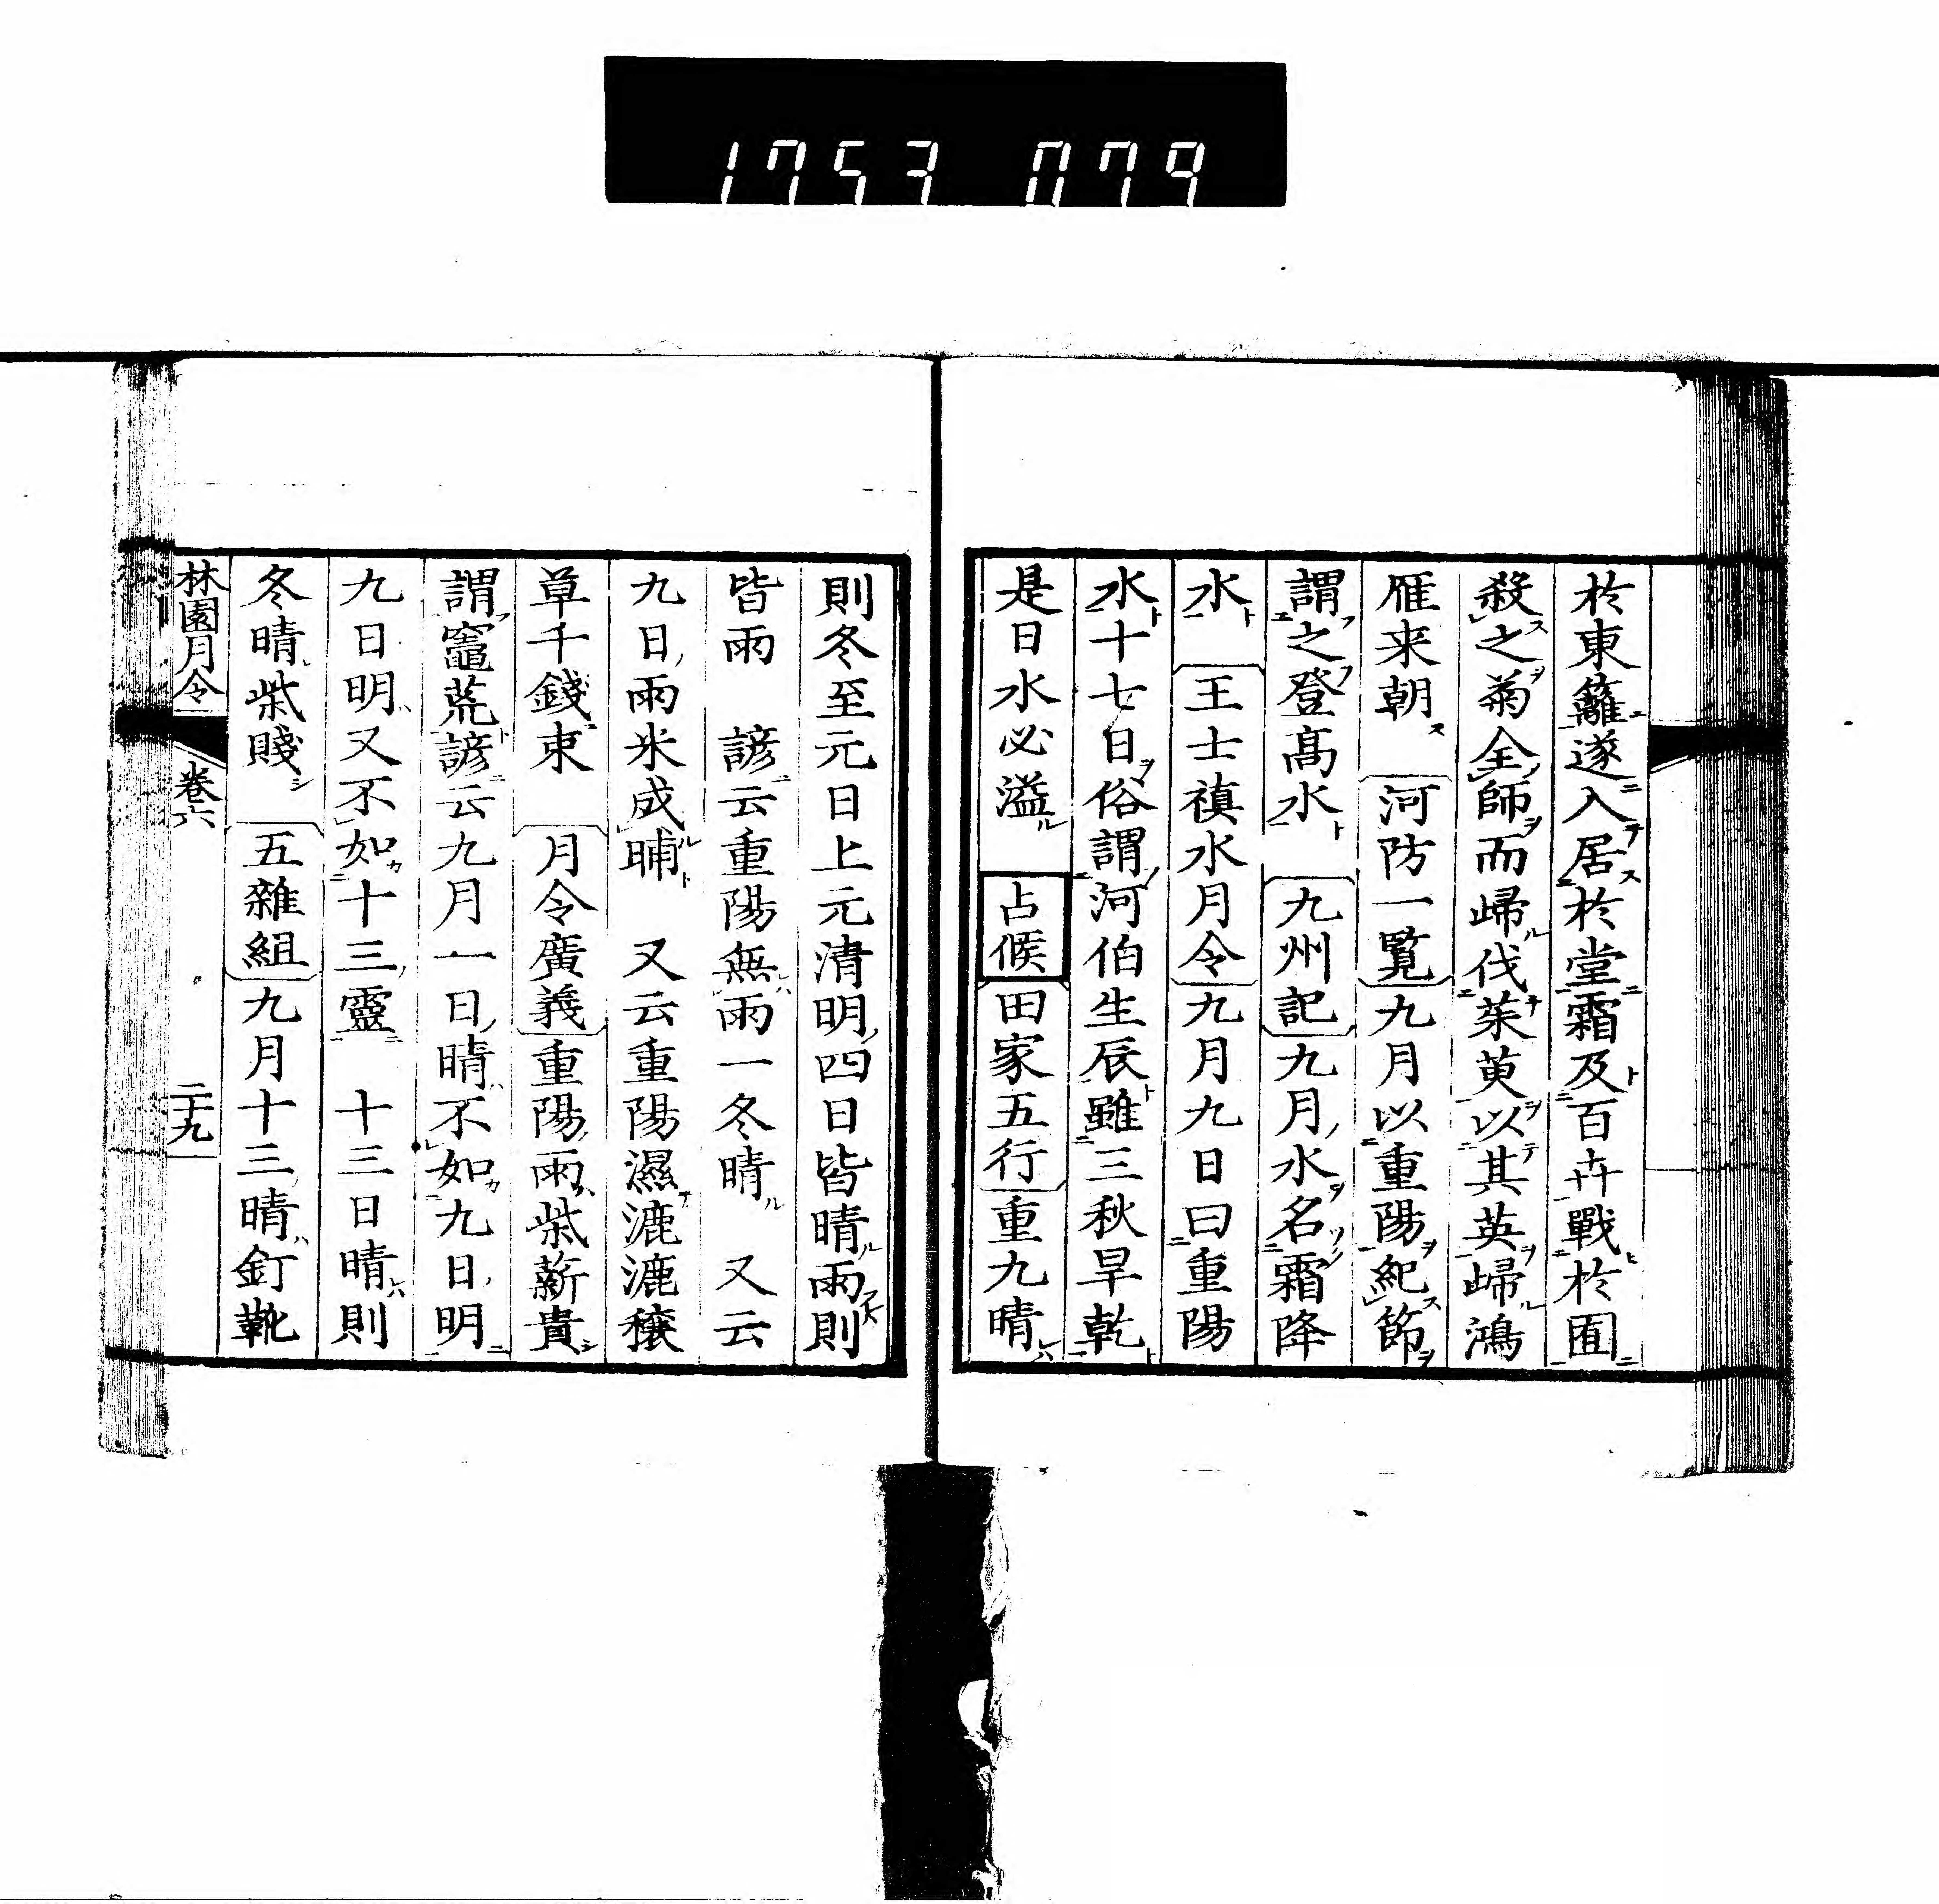 1753 079
於東籬遂入居於堂霜及百卉戰於囿
殺之菊全師而歸伐茱萸以其英歸鴻
雁来朝 河防一覧九月以重陽紀節
謂之登高水 九州記九月水名霜降
水 王士禛水月令九月九日曰重陽
水十七日俗謂河伯生辰雖三秋旱乾
是日水必溢 占候 田家五行重九晴
則冬至元日上元清明四日皆晴雨則
皆雨 諺云重陽無雨一冬晴 又云
九日雨米成脯 又云重陽濕漉漉穰
草千錢束 月令廣義重陽雨柴薪貴
謂竈荒諺云九月一日晴不如九日明
九日明又不如十三靈 十三日晴則
冬晴柴賤 五雜組九月十三晴釘靴
林園月令 卷六 二十九